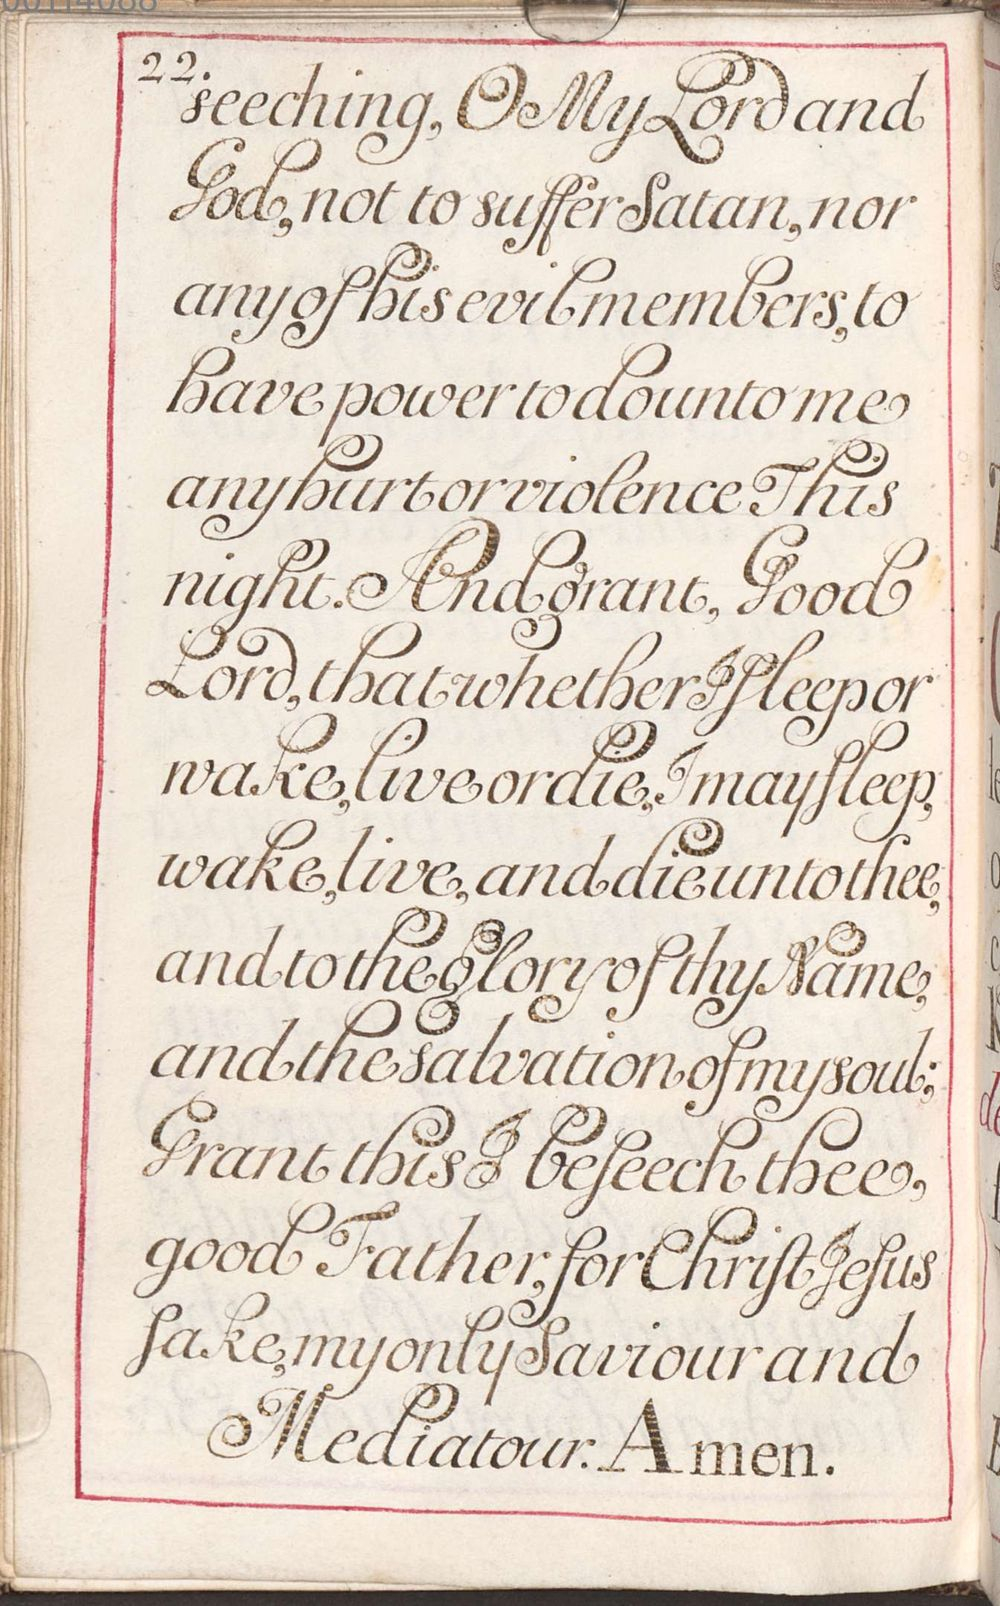 00114088
22.
seeching, O My Lord and
God, not to suffer Satan, nor
any of his evil members, to
have power to do unto me
any hurt or violence This
night. And grant, Good
Lord, that whether I ſleep or
wake, live or die, I may ſleep,
wake, live, and die unto thee,
and to the glory of thy Name,
and the salvation of my soul;
Grant this I beſeech thee,
good Father, for Chriſt Jeſus
ſake, my only Saviour and
Mediatour. Amen.